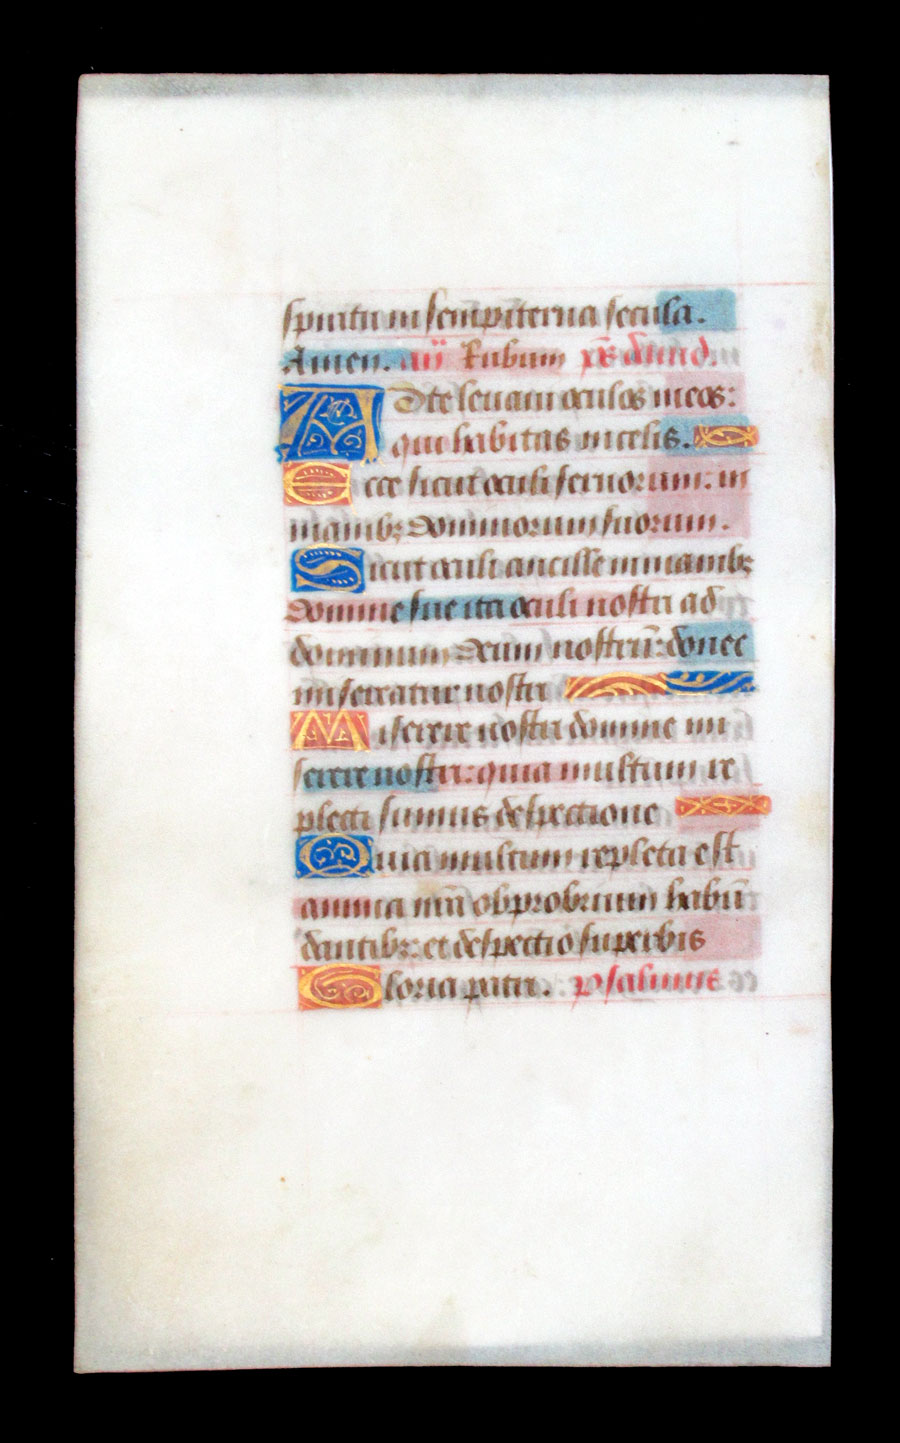 spiritu in sempiterna secula.
Amen. añ Rubum ps dauid.
Ad te leuaui oculos meos:
qui habitas in celis.
Ecce sicut oculi seruorum: in
manibꝫ dominorum suorum.
Sicut oculi ancille in manibꝫ
domine sue ita oculi nostri ad
dominum deum nostrũ: donec
misereatur nostri
Miserere nostri domine mi
serere nostri: quia multum re
pleti sumus despectione
Quia multum repleta est
anima nr̃a obprobrium habũ
dantibꝫ: et despectio superbis
Gloria patri. psalmus